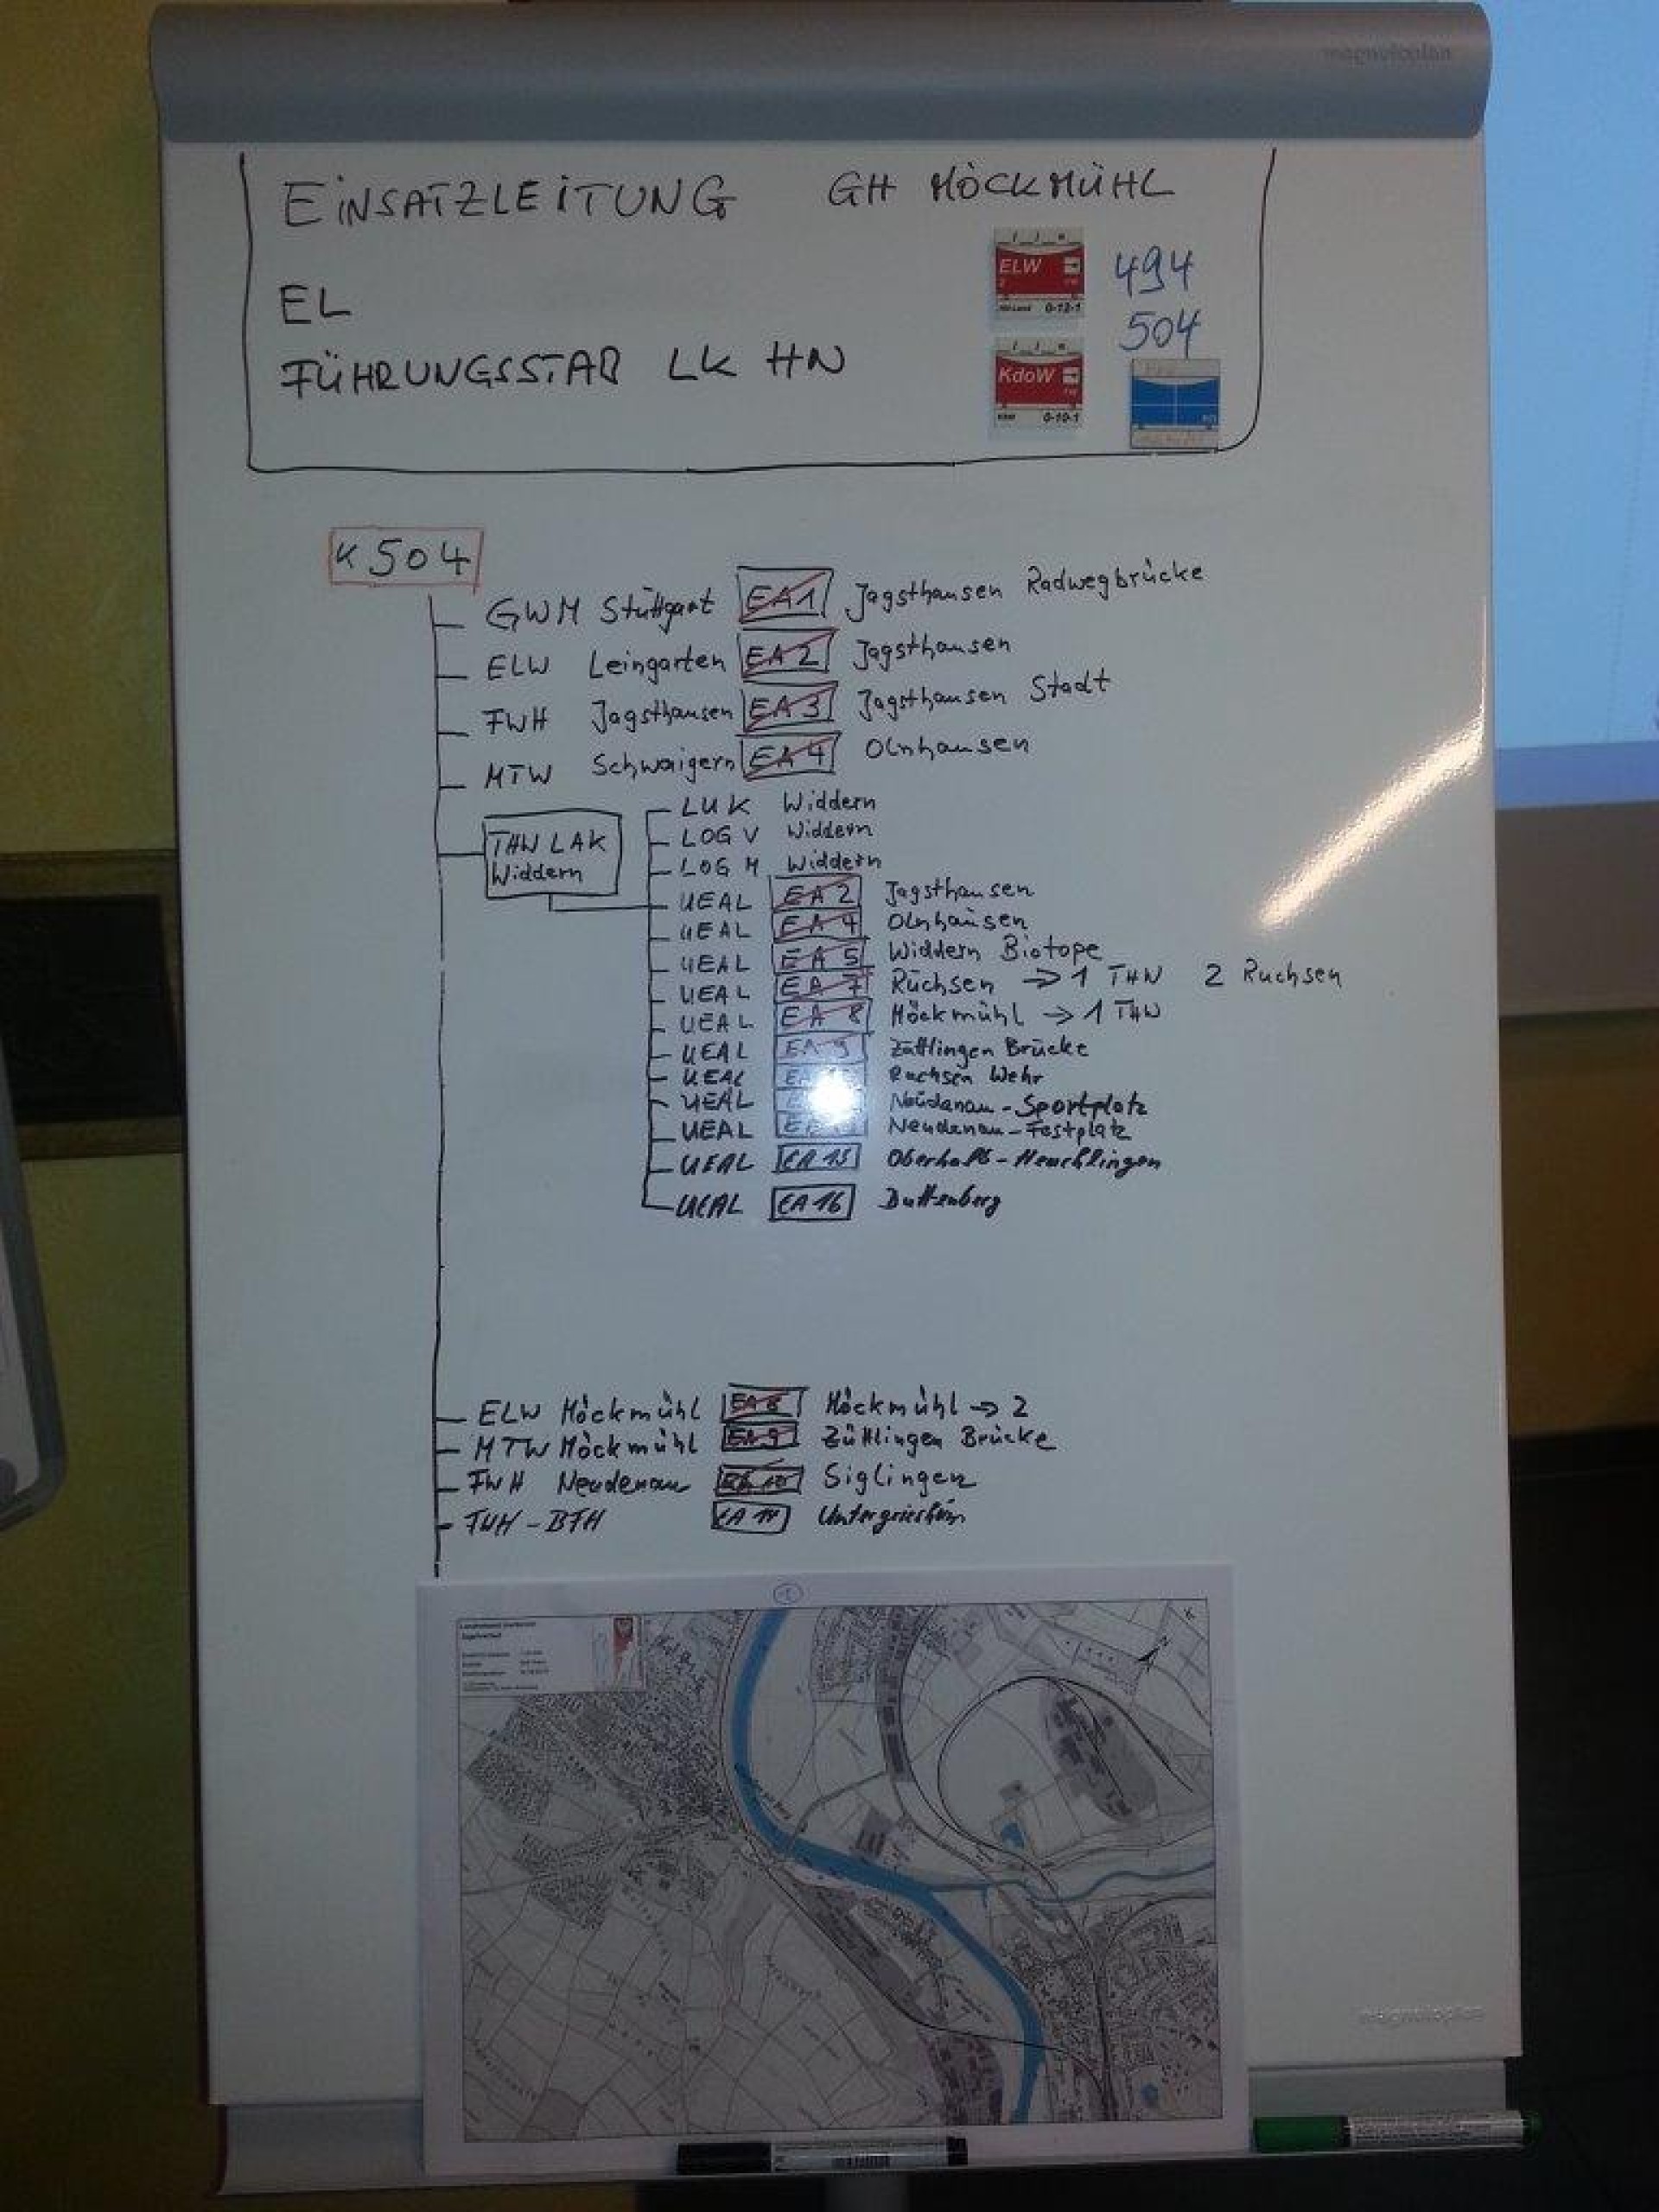 magnetoplan
EINSATZLEITUNG GH MÖCKMÜHL
ELW 494
0-12-1
EL 504
FÜHRUNGSSTAB LK HN KdoW
0-10-1
K 504
GWM Stuttgart EA1 Jagsthausen Radwegbrücke
ELW Leingarten EA 2 Jagsthausen
FWH Jagsthausen EA 3 Jagsthausen Stadt
MTW Schwaigern EA 4 Olnhausen
THW LAK
Widdern
LUK Widdern
LOG V Widdern
LOG M Widdern
UEAL EA 2 Jagsthausen
UEAL EA 4 Olnhausen
UEAL EA 5 Widdern Biotope
UEAL EA 7 Ruchsen → 1 THW 2 Ruchsen
UEAL EA 8 Möckmühl → 1 THW
UEAL EA 9 Züttlingen Brücke
UEAL Ruchsen Wehr
UEAL Neudenau - Sportplatz
UEAL Neudenau - Festplatz
UEAL EA 15 Oberhalb - Heuchlingen
UEAL EA 16 Duttenberg
ELW Möckmühl EA 8 Möckmühl → 2
MTW Möckmühl EA 9 Züttlingen Brücke
FWH Neudenau EA 10 Siglingen
EA 14 Untergriesheim